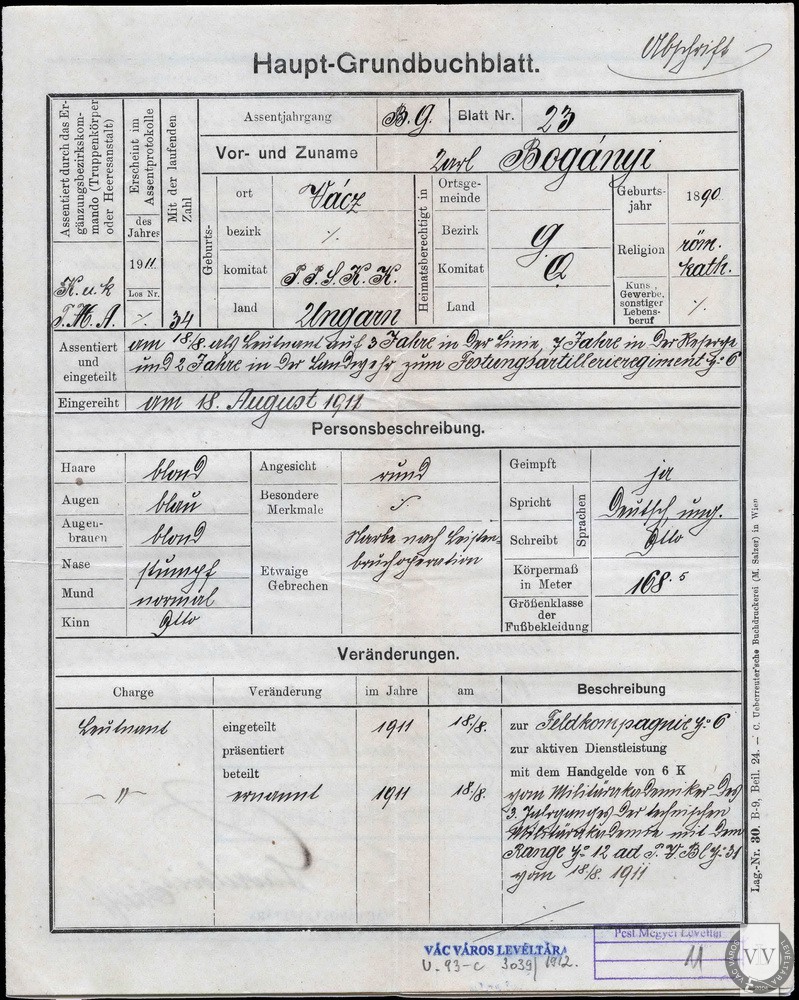 Abschrift
Haupt-Grundbuchblatt.
Assentiert durch das Er-
gänzungsbezirkskom-
mando (Truppenkörper
oder Heeresanstalt)
K. u. k
T. M. A.
Erscheint im
Assentprotokolle
des
Jahres
1911.
Los Nr.
·/.
Mit der laufenden
Zahl
34
Assentjahrgang
B. G.
Blatt Nr.
23
Vor- und Zuname
Karl Bogányi
Geburts-
ort
Vácz
bezirk
·/.
komitat
P. P. S. K. K.
land
Ungarn
Heimatsberechtigt in
Ortsge-
meinde
Bezirk
Komitat
Land
Geburts-
jahr
1890
Religion
röm.
kath.
Kuns,
Gewerbe,
sonstiger
Lebens-
beruf
·/.
Assentiert
und
eingeteilt
am 18/8. als Leutnant auf 3 Jahre in der Linie, 7 Jahre in der Reserve
und 2 Jahre in der Landwehr zum Festungsartillerieregiment No 6
Eingereiht
am 18. August 1911
Personsbeschreibung.
Haare
blond
Augen
blau
Augen-
brauen
blond
Nase
stumpf
Mund
normal
Kinn
Dtto
Angesicht
rund
Besondere
Merkmale
·/.
Etwaige
Gebrechen
Narbe nach Leisten-
bruchoperation
Geimpft
ja
Spricht
Schreibt
Sprachen
Deutsch, ung.
Dtto
Körpermaß
in Meter
168.5
Größenklasse
der
Fußbekleidung
Veränderungen.
Charge
Veränderung
im Jahre
am
Beschreibung
Leutnant
eingeteilt
1911
18/8.
zur Feldkompagnie No 6
präsentiert
zur aktiven Dienstleistung
beteilt
mit dem Handgelde von 6 K
—"—
ernannt
1911
18/8.
vom Militärakademiker des
3. Jahrganges der technischen
Militärakademie mit dem
Range No 12 ad P. V. Bl No 31
vom 18/8. 1911
Lag.-Nr. 30. B-9, Beil. 24. — C. Ueberreuter'sche Buchdruckerei (M. Salzer) in Wien
VÁC VÁROS LEVÉLTÁRA
U. 93-c 3039/1912.
Pest Megyei Levéltár
11
VÁC VÁROS LEVÉLTÁRA
VV